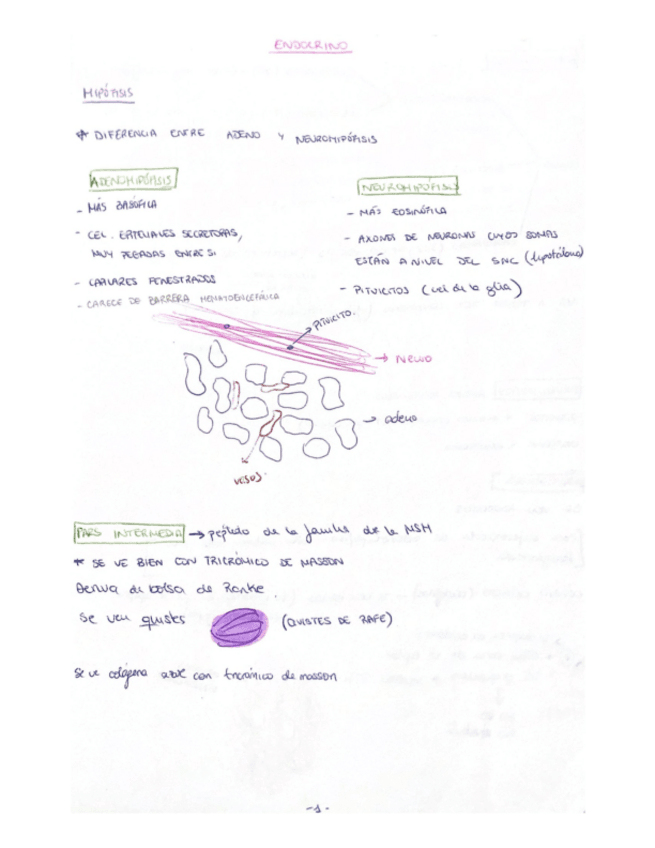 ENDOCRINO
HIPÓFISIS
* DIFERENCIA ENTRE ADENO Y NEUROHIPÓFISIS
ADENOHIPÓFISIS
- MÁS BASÓFILA
- CEL. EPITELIALES SECRETORAS,
MUY PEGADAS ENTRE SI
- CAPILARES FENESTRADOS
- CARECE DE BARRERA HEMATOENCEFÁLICA
NEUROHIPÓFISIS
- MÁS EOSINÓFILA
- AXONES DE NEURONAS CUYOS SOMAS
ESTÁN A NIVEL DEL SNC (hipotálamo)
- PITUICITOS (cel de la glía)
PITUICITO.
→ Neuro
→ adeno
VASOS
PARS INTERMEDIA → péptido de la familia de la MSH
* SE VE BIEN CON TRICRÓMICO DE MASSON
Deriva de bolsa de Ranke.
Se ven quistes (QUISTES DE RAFE)
Se ve colágeno azul con tricrómico de masson
-1-